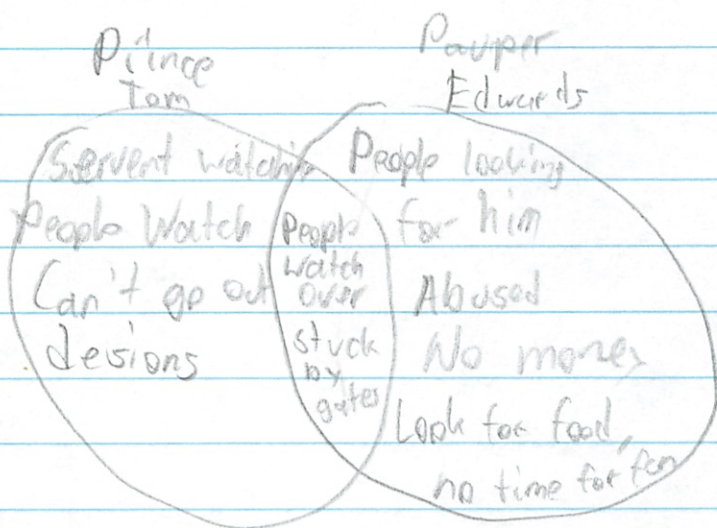 Prince
Tom
Pauper
Edwards
Servent watchin
People Watch
Can't go out
desions
People
watch
over
stuck
by
gates
People looking
for him
Abused
No money
Look for food,
no time for fun